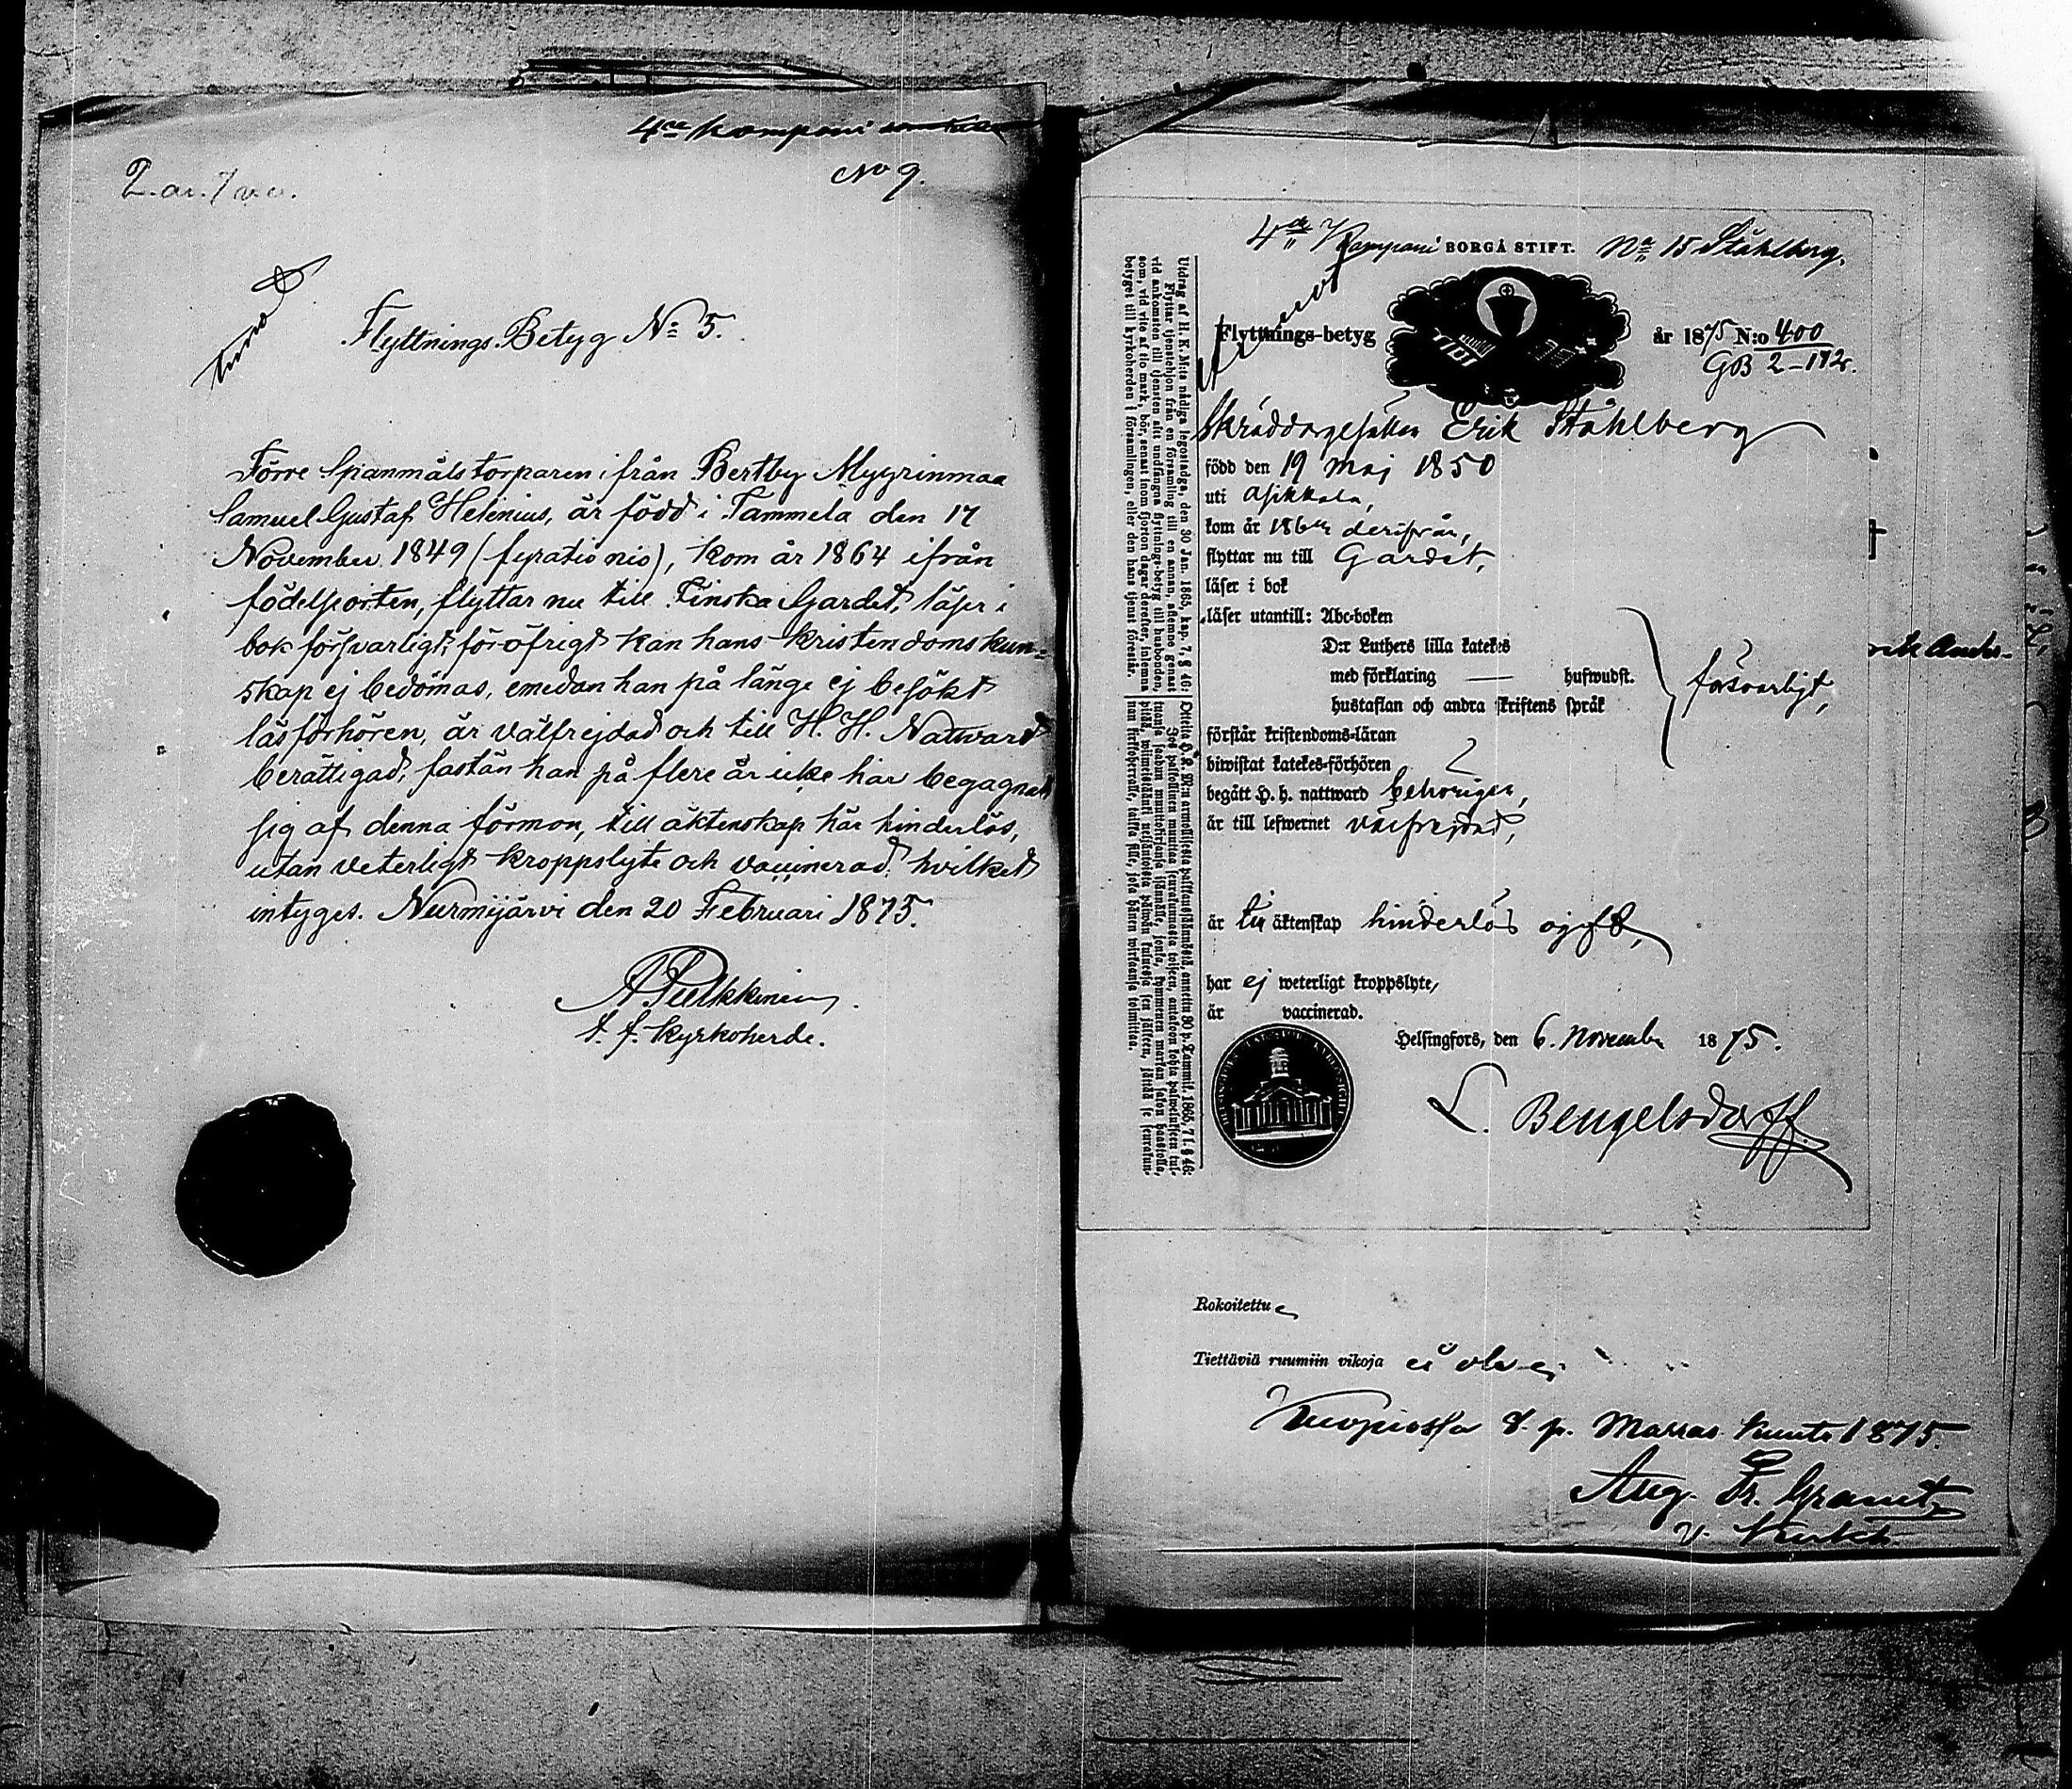 4de Kompani
No 9.
Flyttnings Betyg No 5.
Förre Spanmåls torparen ifrån Bertby Myyrinmaa
Samuel Gustaf Helenius, är född i Tammela den 17
November 1849 (fyratio nio), kom år 1864 ifrån
födelseorten, flyttar nu till Finska Gardet, läser i
bok försvarligt; föröfrigt kan hans kristendoms kun-
skap ej bedömas, emedan han på länge ej besökt
läsförhören, är välfrejdad och till H. H. Nattvard
berättigad, fastän han på flere år icke har begagnat
sig af denna förmon, till äktenskap här hinderlös,
utan veterligt kroppslyte och vaccinerad; hvilket
intyges. Nurmijärvi den 20 Februari 1875.
A Pulkkinen
t. f. Kyrkoherde.
4de Kompani BORGÅ STIFT. No 15 Ståhlberg.
Flyttnings-betyg år 1875 N:o 400
GB 2-192.
Skräddargesällen Erik Ståhlberg
född den 19 Maj 1850
uti Asikkala,
kom år 186 derifrån,
flyttar nu till Gardet,
läser i bok
läser utantill: Abc-boken
D:r Luthers lilla katekes
med förklaring — hufwudst.
hustaflan och andra skriftens språk
försvarligt,
förstår kristendoms-läran
biwistat katekes-förhören
begått H. H. nattward behörigen,
är till lefwernet välfrejdad,
är till äktenskap hinderlös ogift,
har ej weterligt kroppslyte,
är vaccinerad.
Helsingfors, den 6. November 1875.
L. Bengelsdorff
Utdrag af H. K. M:ts nådiga legostadga, den 30 Jan. 1865, kap. 7, § 46:
Flyttar tjenstehjon från en församling till en annan, aflemne genast
vid ankomsten till tjensten sitt undfångna flyttnings-betyg till husbonden,
som, vid vite af tio mark, bör, senast inom fjorton dagar derefter, inlemna
betyget till kyrkoherden i församlingen, eller den hans tjenst förestår.
Rokoitettu
Tiettäviä ruumiin vikoja ei ole
Kuopiossa 8 p. Marras kuuta 1875.
Aug. Fr. Granit